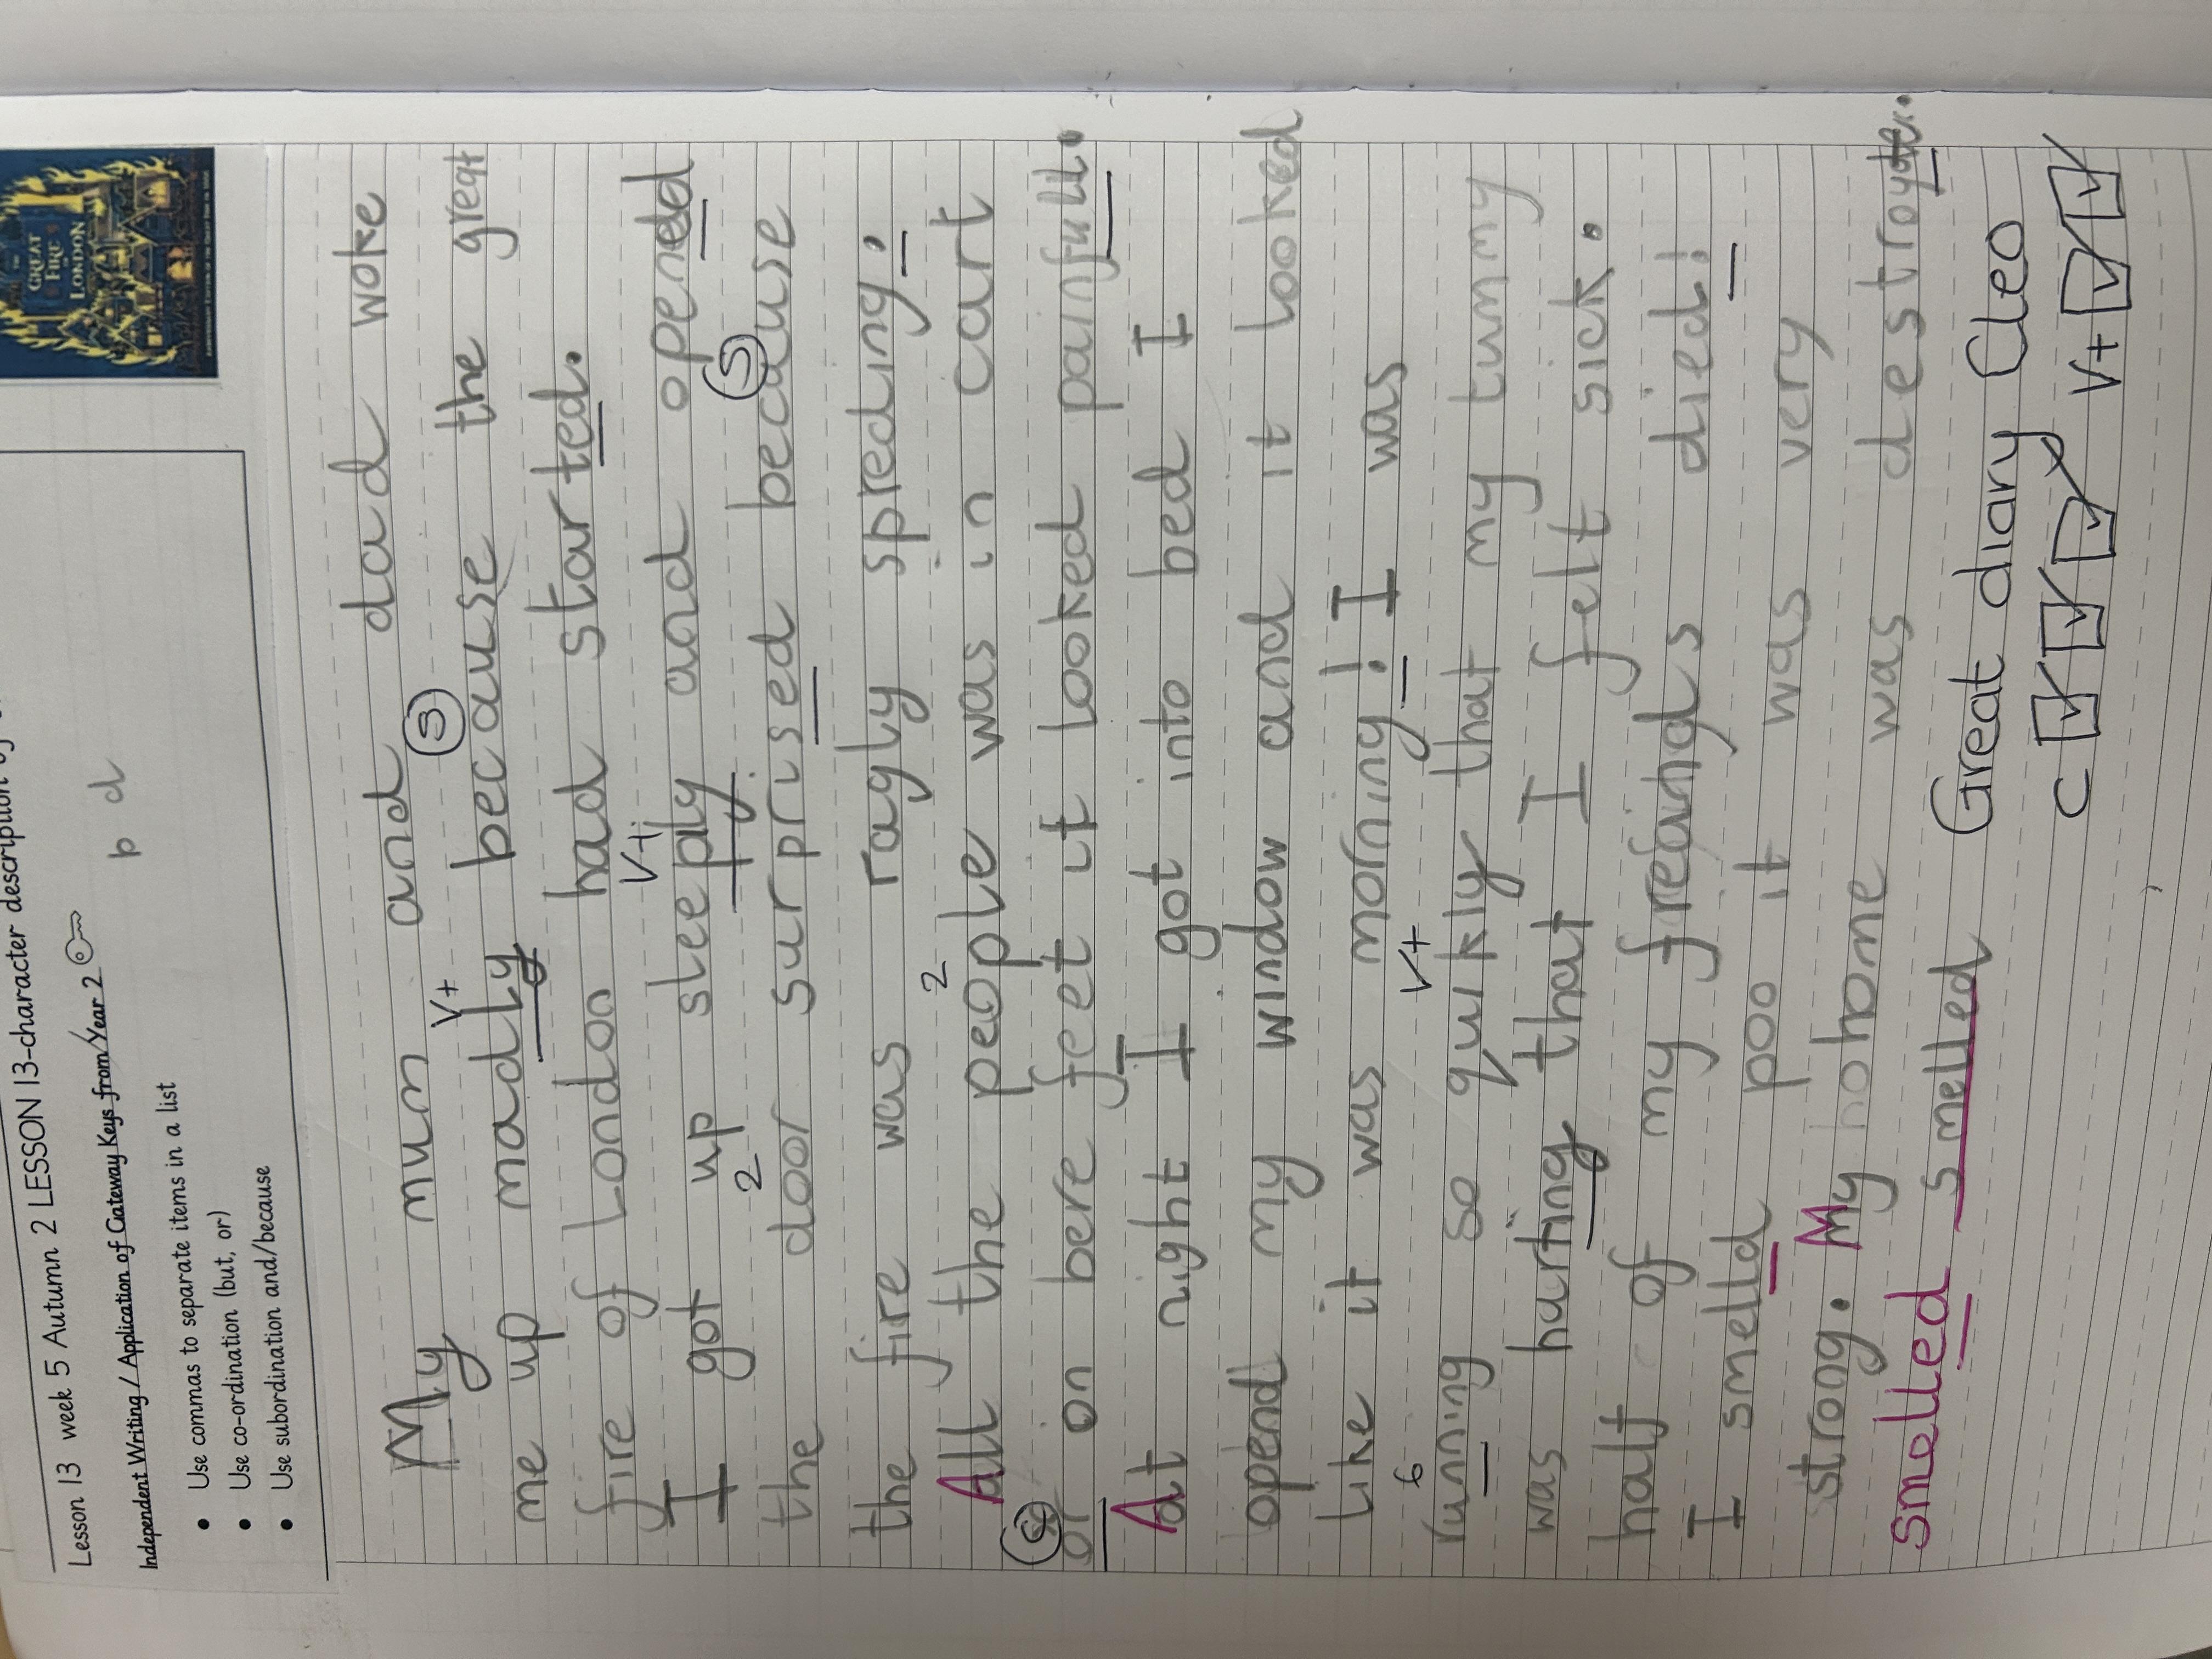 Lesson 13 week 5 Autumn 2 LESSON 13-character description
Independent Writing / Application of Gateway Keys from Year 2
b d
• Use commas to separate items in a list
• Use co-ordination (but, or)
• Use subordination and/because
GREAT
FIRE
OF
LONDON
My mum and dad woke
V+ S
me up madly because the great
fire of London had started.
V+
I got up sleeply and opened
2 S
the door surprised because
the fire was ragly spreding.
2
All the people was in cart
C
or on bere feet it looked painfull.
At night I got into bed I
opend my window and it looked
Like it was morning! I was
6 V+
running so quikly that my tummy
was harting that I felt sick.
half of my freinds died!
I smelld poo it was very
strong. My home was destroyde.
smelled smelled Great diary Cleo
C V+